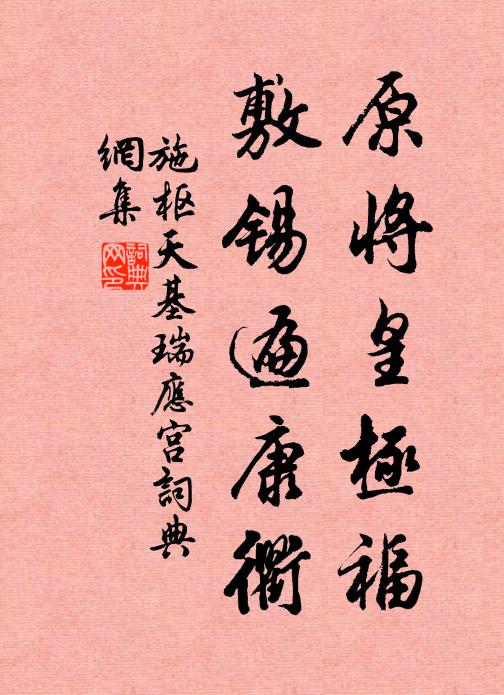 原將皇極福
敷錫遍康衢
施枢天基瑞應宫詞典
網集
詞典
网印